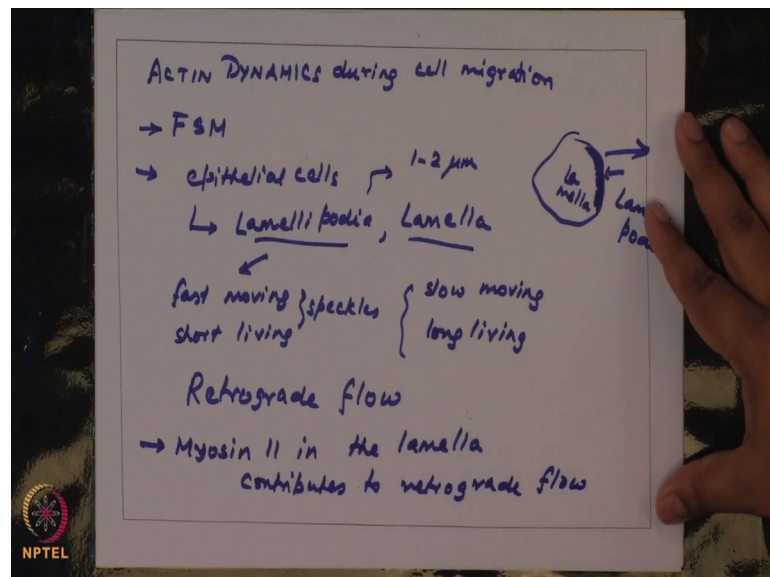 ACTIN DYNAMICS during cell migration
→ FSM
→ epithelial cells → 1-2 μm
↳ Lamelli podia, Lamella
fast moving
short living } speckles { slow moving
long living
Retrograde flow
→ Myosin II in the lamella
contributes to retrograde flow
La
mella
Lam
podi
NPTEL